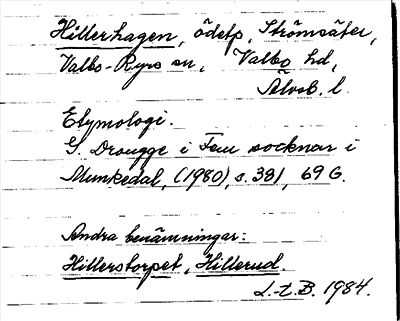 Hillerhagen, ödetp, Strömsäter,
Valbo-Ryrs sn, Valbo hd,
Älvsb. l.
Etymologi.
G. Drougge i Fem socknar i
Munkedal, (1980), s. 381, 69 G.
Andra benämningar:
Hillerstorpet, Hillerud.
L.t.B. 1984.